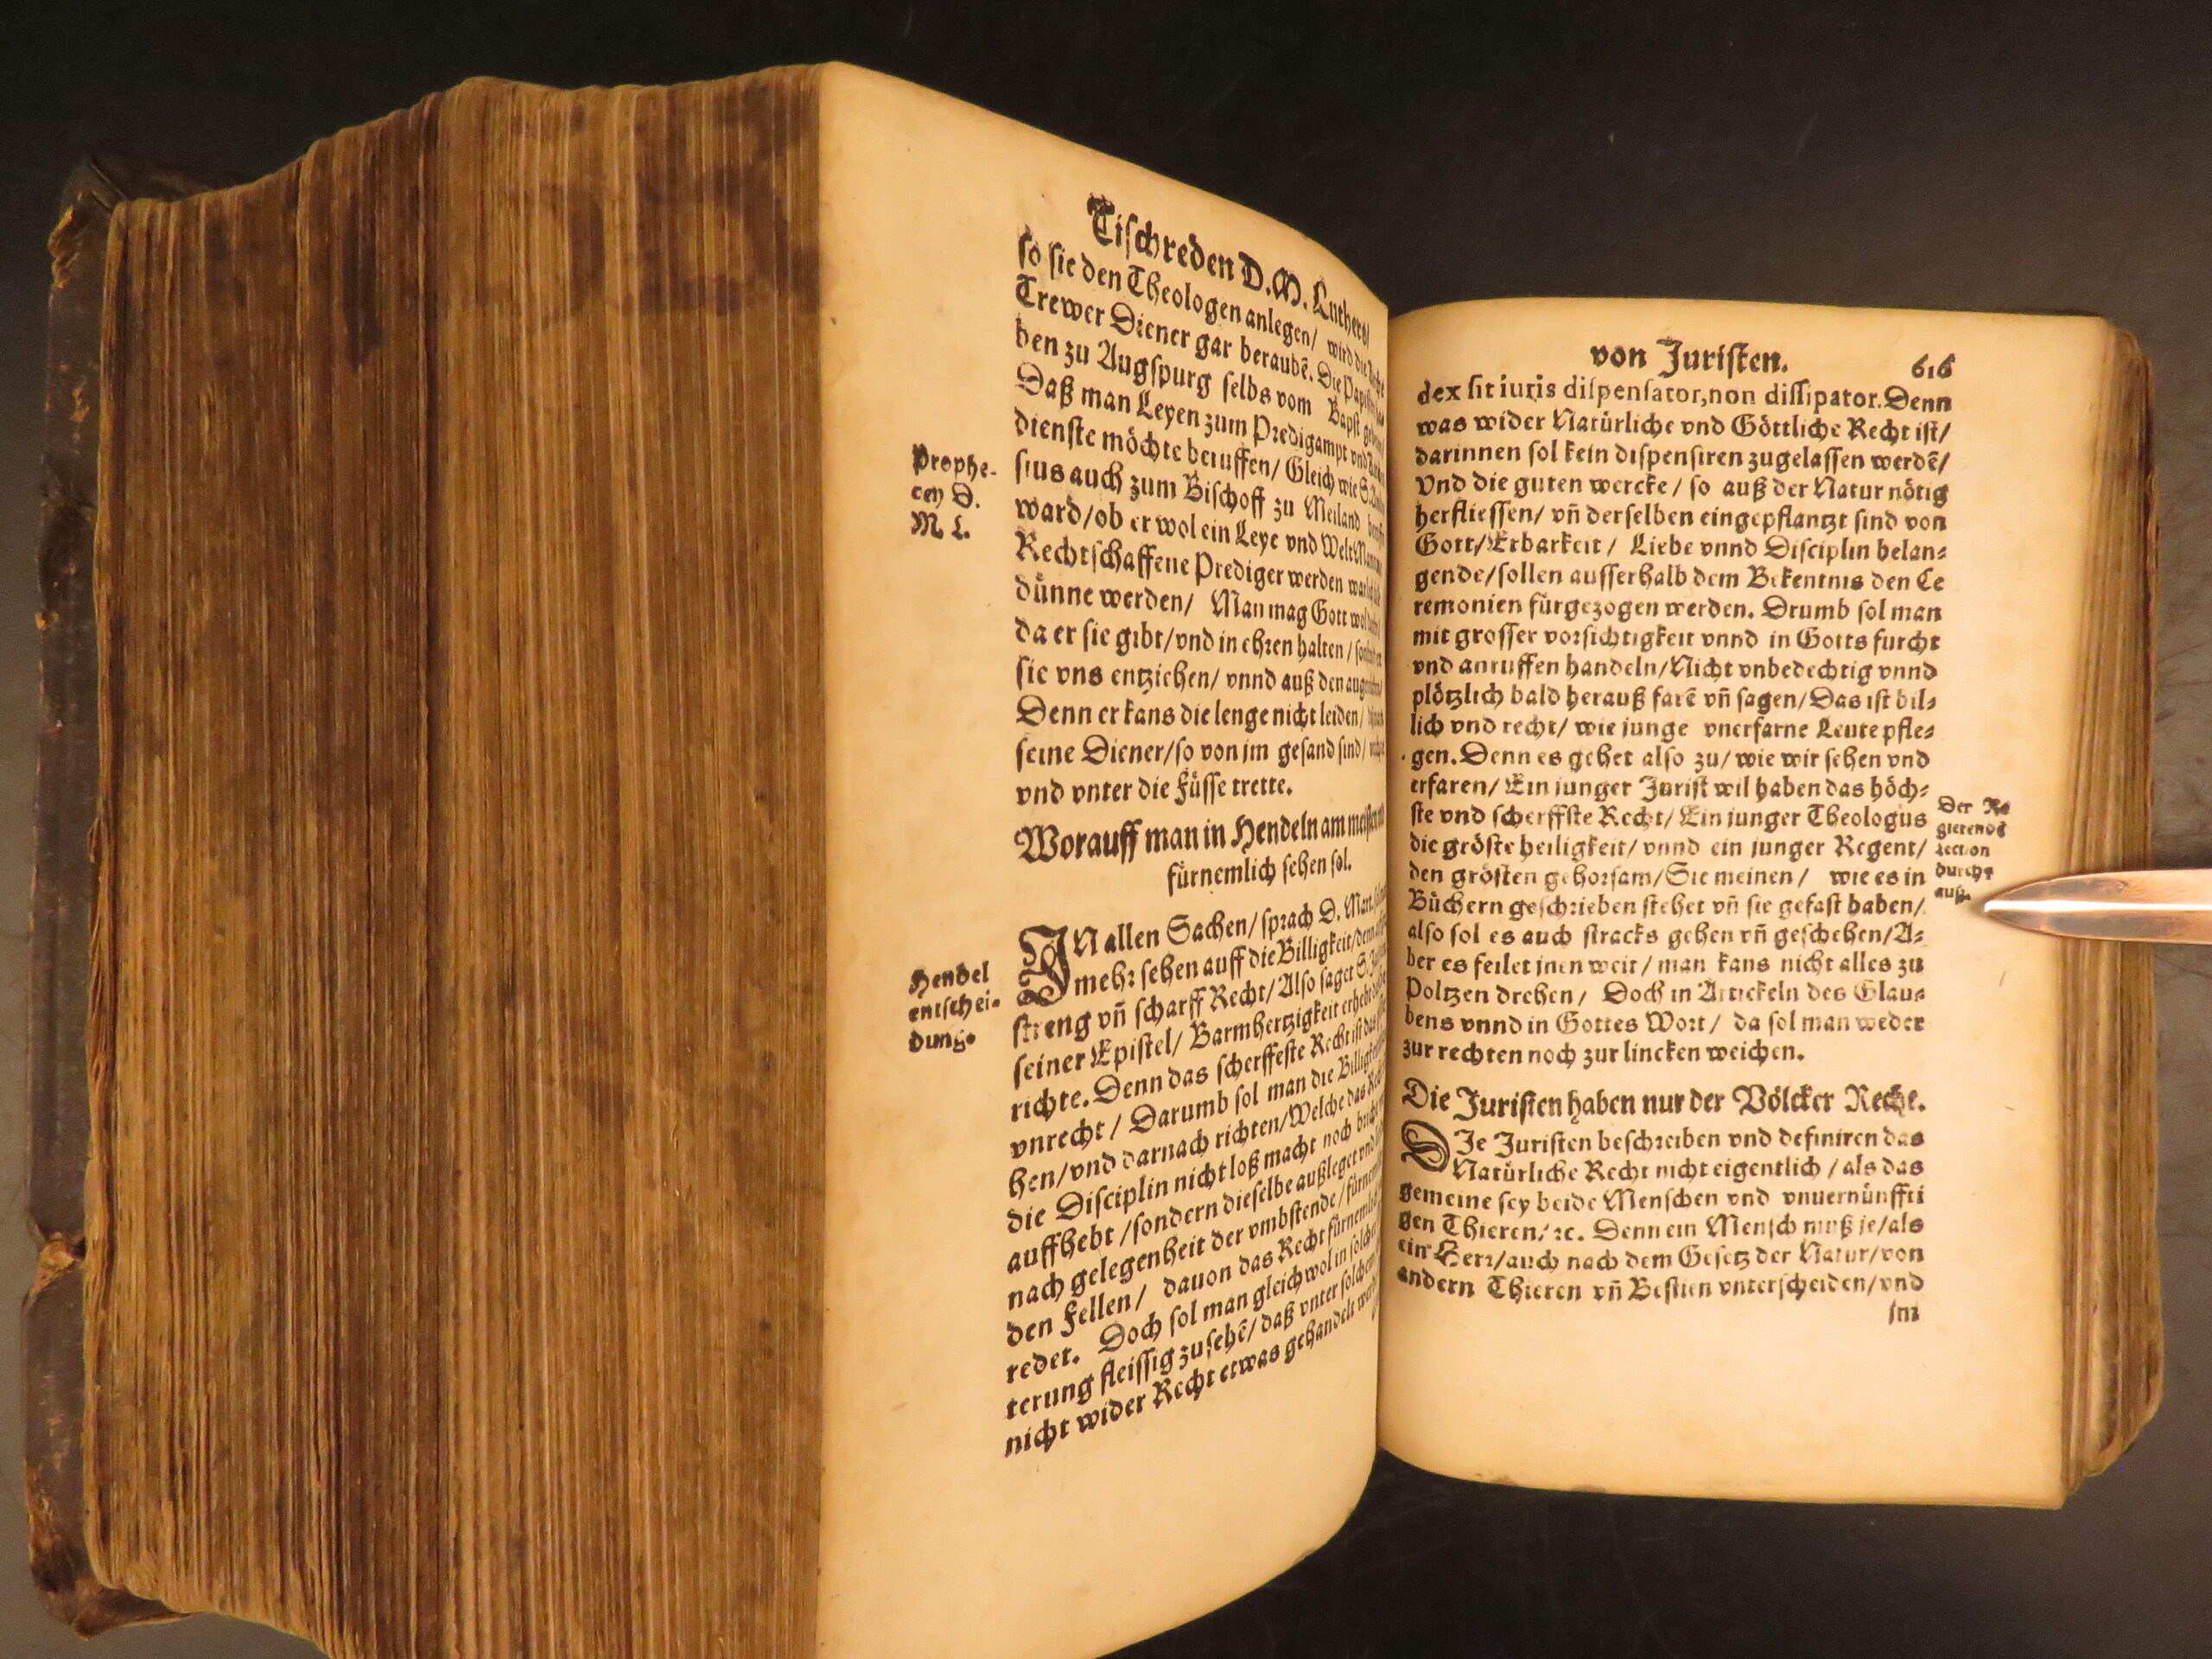 Tischreden D. M. Luthers/
so sie den Theologen anlegen/ wird die
Trewer Diener gar beraubē. Die
ben zu Augspurg selbs vom Bapst
Daß man Leyen zum Predigampt vnd
dienste möchte beruffen/ Gleich wie S.
sius auch zum Bischoff zu Meiland
ward/ob er wol ein Leye vnd Welt
Rechtschaffene Prediger werden
dünne werden/ Man mag Gott wol
da er sie gibt/vnd in ehren halten/
sie vns entziehen/ vnnd auß den
Denn er kans die lenge nicht leiden/
seine Diener/so von jm gesand sind/
vnd vnter die Füsse trette.
Prophe-
cey D.
M L.
Worauff man in Hendeln am
fürnemlich sehen sol.
IN allen Sachen/ sprach D. Mart.
mehr sehen auff die Billigkeit/
streng vñ scharff Recht/Also saget S.
seiner Epistel/ Barmhertzigkeit
richte. Denn das scherffeste Recht ist das
vnrecht/ Darumb sol man die
hen/vnd darnach richten/Welche das
die Disciplin nicht loß macht noch
auffhebt/sondern dieselbe außleget vnd
nach gelegenheit der vmbstende/
den Fellen/ dauon das Recht
redet. Doch sol man gleichwol in
terung fleissig zusehē/ daß vnter
nicht wider Recht etwas gehandelt
Hendel
entschei-
dung.
von Juristen. 616
dex sit iuris dispensator, non dissipator. Denn
was wider Natürliche vnd Göttliche Recht ist/
darinnen sol kein dispensiren zugelassen werdē/
Vnd die guten wercke/ so auß der Natur nötig
herfliessen/ vñ derselben eingepflantzt sind von
Gott/Erbarkeit/ Liebe vnnd Disciplin belan-
gende/sollen ausserhalb dem Bekentnis den Ce
remonien fürgezogen werden. Drumb sol man
mit grosser vorsichtigkeit vnnd in Gotts furcht
vnd anruffen handeln/Nicht vnbedechtig vnnd
plötzlich bald herauß farē vñ sagen/Das ist bil-
lich vnd recht/ wie junge vnerfarne Leute pfle-
gen. Denn es gehet also zu/ wie wir sehen vnd
erfaren/ Ein junger Jurist wil haben das höch-
ste vnd scherffste Recht/ Ein junger Theologus
die gröste heiligkeit/ vnnd ein junger Regent/
den grösten gehorsam/Sie meinen/ wie es in
Büchern geschrieben stehet vñ sie gefast haben/
also sol es auch stracks gehen vñ geschehen/A-
ber es feilet jnen weit/ man kans nicht alles zu
Poltzen drehen/ Doch in Artickeln des Glau-
bens vnnd in Gottes Wort/ da sol man weder
zur rechten noch zur lincken weichen.
Der Re
gierende
Lection
durchs
auß.
Die Juristen haben nur der Völcker Rechte.
DIe Juristen beschreiben vnd definiren das
Natürliche Recht nicht eigentlich/ als das
gemeine sey beide Menschen vnd vnuernünffti
gen Thieren/ ꝛc. Denn ein Mensch muß je/als
ein Herr/auch nach dem Gesetz der Natur/von
andern Thieren vñ Bestien vnterscheiden/vnd
im